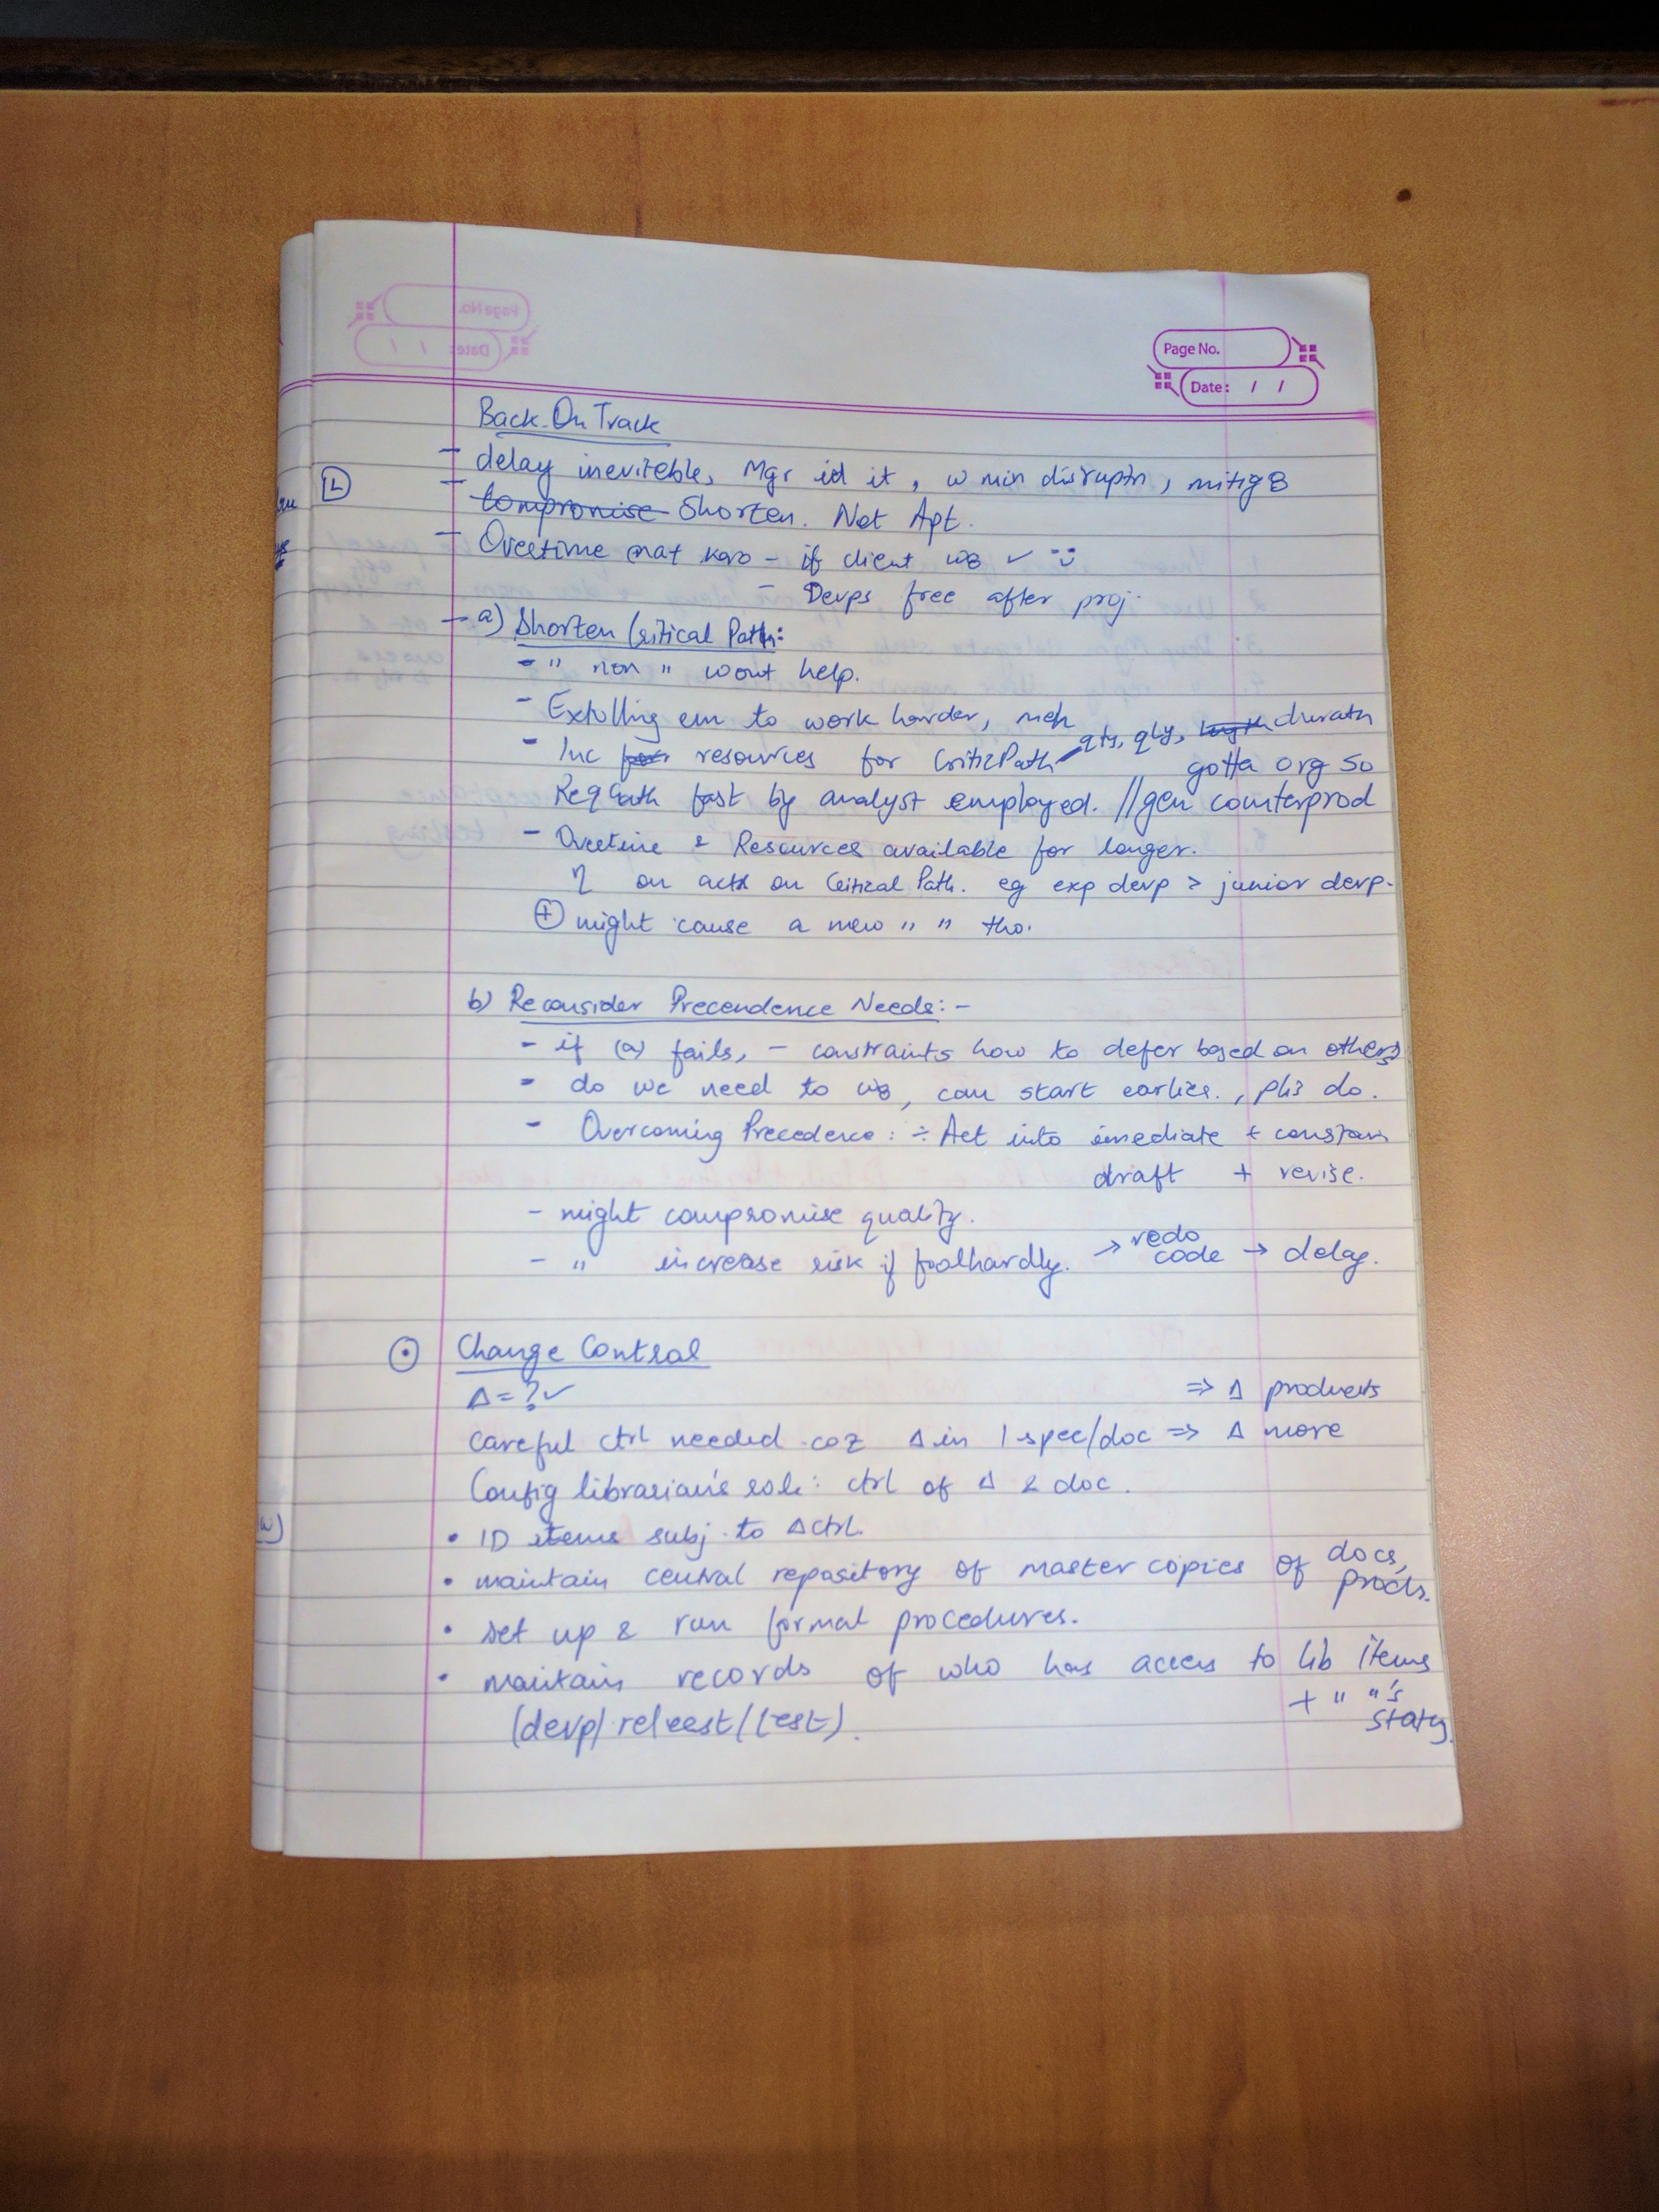 Page No.
Date: / /
Back On Track
- delay inevitable, Mgr id it, w min disruptn, mitig8
L
- Compromise Shorten. Not Apt.
- Overtime mat karo - if client w8 ✓ :)
- Devps free after proj.
- a) Shorten Critical Path:
- " non " wont help.
- Extolling em to work harder, meh
- Inc resources for CriticPath qty, qly, length duratn
gotta org so
Req Gath fast by analyst employed. //gen counterprod
- Overtime & Resources available for longer.
η on acts on Critical Path. eg exp devp > junior devp.
⊕ might cause a new " " tho.
b) Reconsider Precendence Needs:-
- if (a) fails, - constraints how to defer based on others
- do we need to w8, can start earlier., pls do.
- Overcoming Precedence: ÷ Act into imediate +
draft + revise.
- might compromise quality.
- " increase risk if foolhardly. → redo code → delay.
⊙ Change Control
Δ = ? ✓ ⇒ Δ products
Careful ctrl needed coz Δ in 1 spec/doc ⇒ Δ more
Config librarian's role: ctrl of Δ & doc.
• ID items subj. to Δ ctrl.
• maintain central repository of master copies of docs, prods.
• set up & run formal procedures.
• maintain records of who has access to lib items
+ " "'s status.
(devp/ /test).